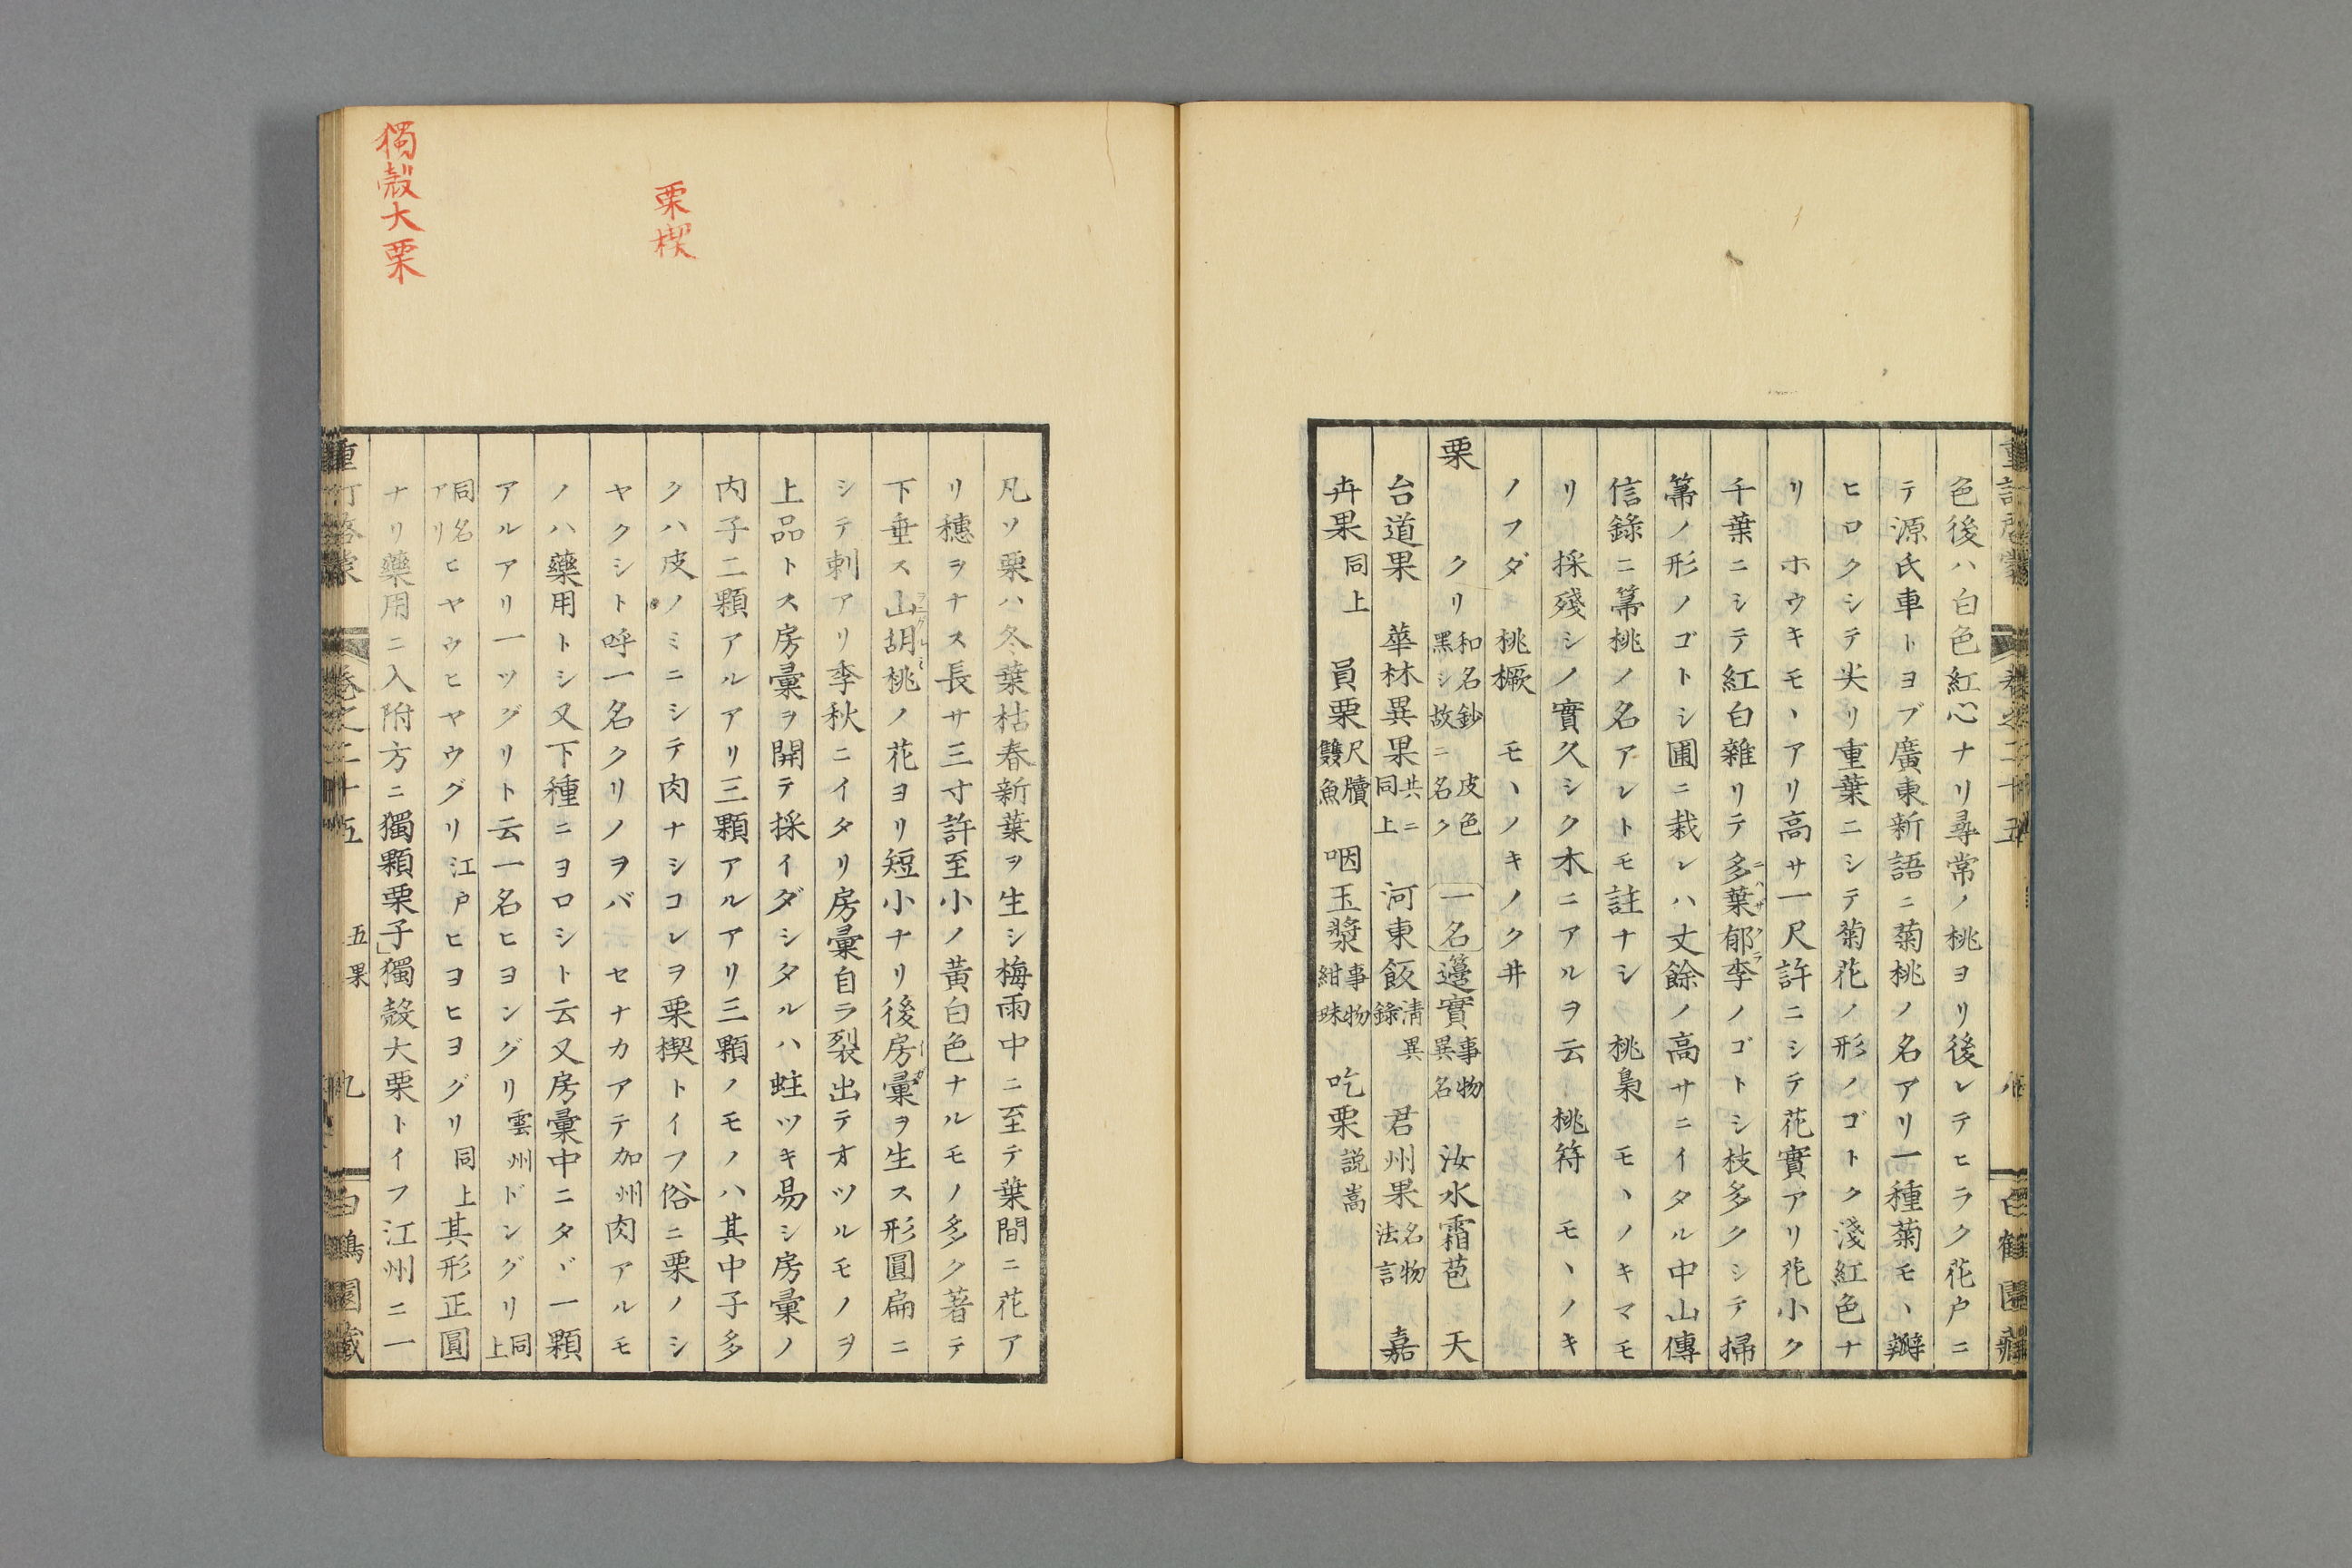 色後ハ白色紅心ナリ尋常ノ桃ヨリ後レテヒラク花戸ニ
テ源氏車トヨブ廣東新語ニ菊桃ノ名アリ一種菊モヽ瓣
ヒロクシテ尖リ重葉ニシテ菊花ノ形ノゴトク淺紅色ナ
リ ホウキモヽアリ高サ一尺許ニシテ花實アリ花小ク
千葉ニシテ紅白雜リテ多葉郁李ノゴトシ枝多クシテ掃
箒ノ形ノゴトシ圃ニ栽レハ丈餘ノ高サニイタル中山傳
信錄ニ箒桃ノ名アレトモ註ナシ 桃梟 モヽノキマモ
リ 採殘シノ實久シク木ニアルヲ云 桃符 モヽノキ
ノフダ 桃橛 モヽノキノクヰ
栗 クリ 和名鈔 皮色黑シ故ニ名ク 一名 籩實 事物異名 汝水霜苞 天
台道果 華林異果 共ニ同上 河東飯 淸異錄 君州果 名物法言 嘉
卉果 同上 員栗 尺牘雙魚 咽玉漿 事物紺珠 吃栗 説嵩
重訂啓蒙 卷之二十五 八 白鶴園藏
凡ソ栗ハ冬葉枯春新葉ヲ生シ梅雨中ニ至テ葉間ニ花ア
リ穗ヲナス長サ三寸許至小ノ黃白色ナルモノ多ク著テ
下垂ス山胡桃ノ花ヨリ短小ナリ後房彙ヲ生ス形圓扁ニ
シテ刺アリ季秋ニイタリ房彙自ラ裂出テオツルモノヲ
上品トス房彙ヲ開テ採イダシタルハ蛀ツキ易シ房彙ノ
內子二顆アルアリ三顆アルアリ三顆ノモノハ其中子多
クハ皮ノミニシテ肉ナシコレヲ栗楔トイフ俗ニ栗ノシ
ヤクシト呼一名クリノヲバ セナカアテ 加州 肉アルモ
ノハ藥用トシ又下種ニヨロシト云又房彙中ニタヾ一顆
アルアリ一ツグリト云一名ヒヨングリ 雲州 ドングリ 同上
同名アリ ヒヤウヒヤウグリ 江戸 ヒヨヒヨグリ 同上 其形正圓
ナリ藥用ニ入附方ニ獨顆栗子」獨殼大栗トイフ江州ニ一
重訂啓蒙 卷之二十五 五果 九 白鶴園藏
栗楔
獨殼大栗